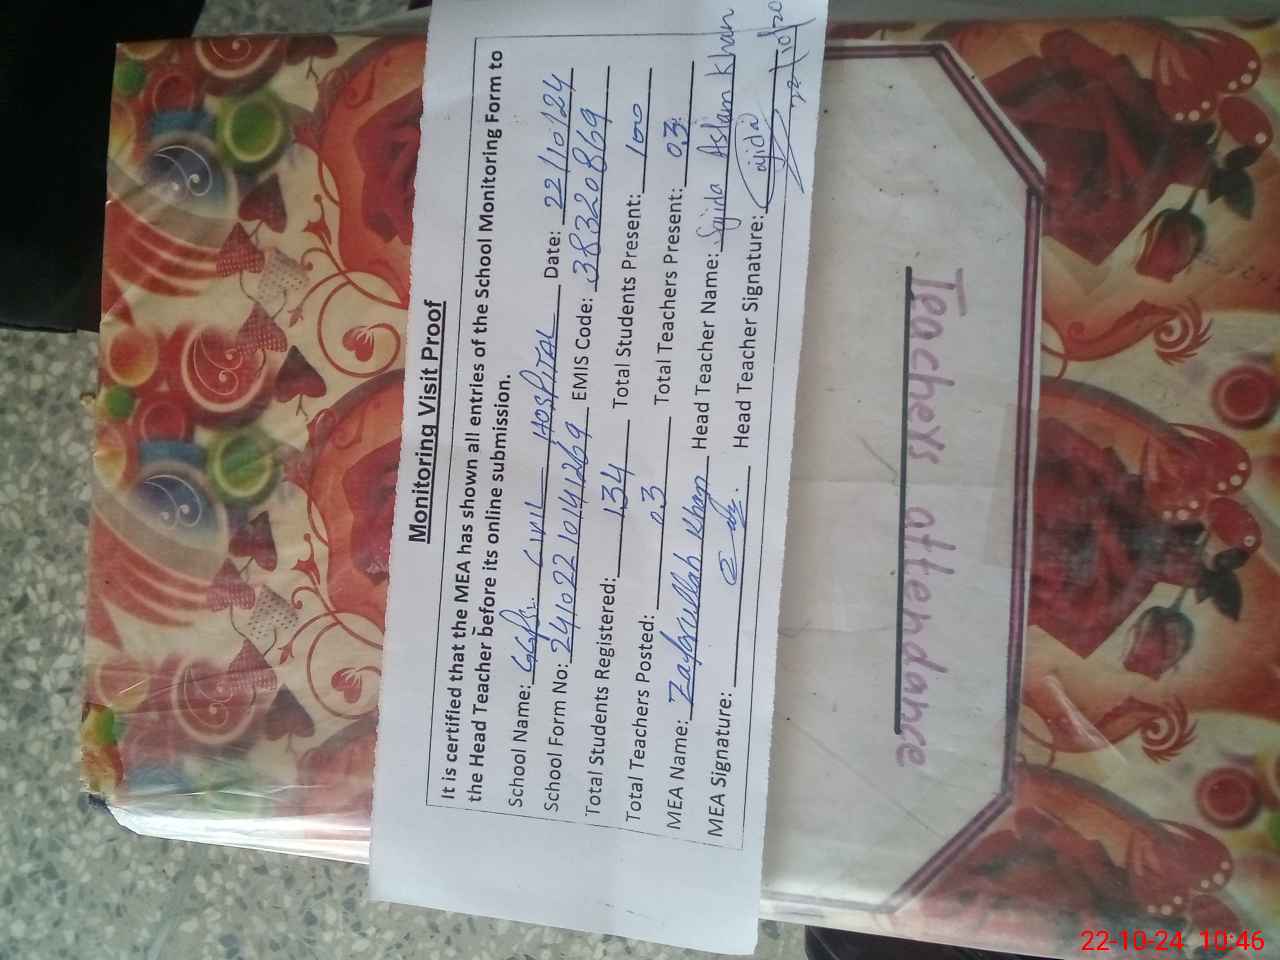 Monitoring Visit Proof
It is certified that the MEA has shown all entries of the School Monitoring Form to
the Head Teacher before its online submission.
School Name: GGPS. CIVIL HOSPITAL Date: 22/10/24
School Form No: 24102210141269 EMIS Code: 38320869
Total Students Registered: 134 Total Students Present: 100
Total Teachers Posted: 03 Total Teachers Present: 03
MEA Name: Zafarullah Khan Head Teacher Name: Sajida Aslam Khan
MEA Signature: Head Teacher Signature:
22/10/20
Teachers attendance
22-10-24 10:46